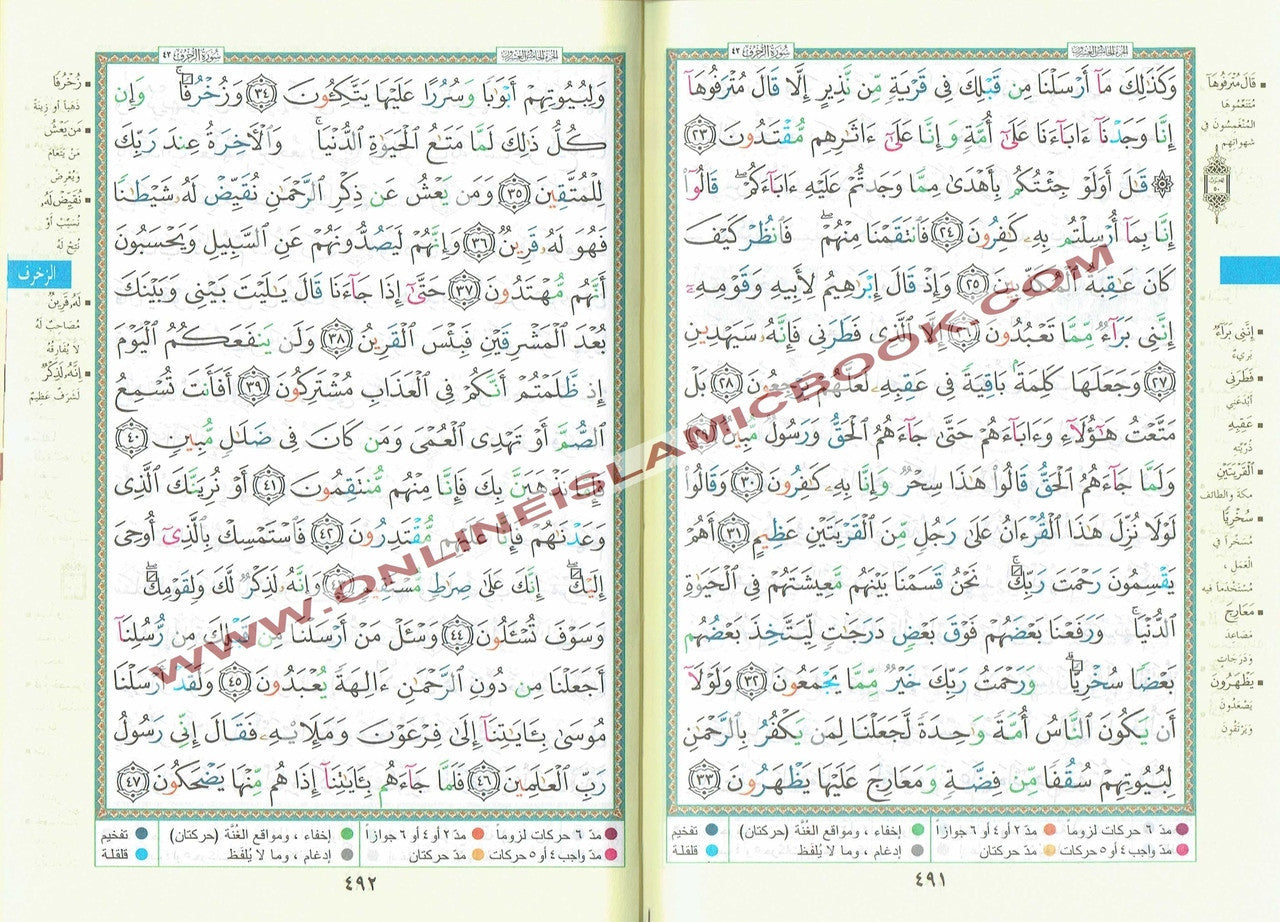 سُورَةُ الزُّخْرُفِ ٤٣
الجزء الخامس والعشرون
وَكَذَٰلِكَ مَآ أَرْسَلْنَا مِن قَبْلِكَ فِى قَرْيَةٍ مِّن نَّذِيرٍ إِلَّا قَالَ مُتْرَفُوهَآ
إِنَّا وَجَدْنَآ ءَابَآءَنَا عَلَىٰٓ أُمَّةٍ وَإِنَّا عَلَىٰٓ ءَاثَٰرِهِم مُّقْتَدُونَ ٢٣
۞ قَٰلَ أَوَلَوْ جِئْتُكُم بِأَهْدَىٰ مِمَّا وَجَدتُّمْ عَلَيْهِ ءَابَآءَكُمْ ۖ قَالُوٓا۟
إِنَّا بِمَآ أُرْسِلْتُم بِهِۦ كَٰفِرُونَ ٢٤ فَٱنتَقَمْنَا مِنْهُمْ ۖ فَٱنظُرْ كَيْفَ
كَانَ عَٰقِبَةُ ٱلْمُكَذِّبِينَ ٢٥ وَإِذْ قَالَ إِبْرَٰهِيمُ لِأَبِيهِ وَقَوْمِهِۦٓ
إِنَّنِى بَرَآءٌ مِّمَّا تَعْبُدُونَ ٢٦ إِلَّا ٱلَّذِى فَطَرَنِى فَإِنَّهُۥ سَيَهْدِينِ
٢٧ وَجَعَلَهَا كَلِمَةًۢ بَاقِيَةً فِى عَقِبِهِۦ لَعَلَّهُمْ يَرْجِعُونَ ٢٨ بَلْ
مَتَّعْتُ هَٰٓؤُلَآءِ وَءَابَآءَهُمْ حَتَّىٰ جَآءَهُمُ ٱلْحَقُّ وَرَسُولٌ مُّبِينٌ ٢٩
وَلَمَّا جَآءَهُمُ ٱلْحَقُّ قَالُوا۟ هَٰذَا سِحْرٌ وَإِنَّا بِهِۦ كَٰفِرُونَ ٣٠ وَقَالُوا۟
لَوْلَا نُزِّلَ هَٰذَا ٱلْقُرْءَانُ عَلَىٰ رَجُلٍ مِّنَ ٱلْقَرْيَتَيْنِ عَظِيمٍ ٣١ أَهُمْ
يَقْسِمُونَ رَحْمَتَ رَبِّكَ ۚ نَحْنُ قَسَمْنَا بَيْنَهُم مَّعِيشَتَهُمْ فِى ٱلْحَيَوٰةِ
ٱلدُّنْيَا ۚ وَرَفَعْنَا بَعْضَهُمْ فَوْقَ بَعْضٍ دَرَجَٰتٍ لِّيَتَّخِذَ بَعْضُهُم
بَعْضًا سُخْرِيًّا ۗ وَرَحْمَتُ رَبِّكَ خَيْرٌ مِّمَّا يَجْمَعُونَ ٣٢ وَلَوْلَآ
أَن يَكُونَ ٱلنَّاسُ أُمَّةً وَٰحِدَةً لَّجَعَلْنَا لِمَن يَكْفُرُ بِٱلرَّحْمَٰنِ
لِبُيُوتِهِمْ سُقُفًا مِّن فِضَّةٍ وَمَعَارِجَ عَلَيْهَا يَظْهَرُونَ ٣٣
قَالَ مُتْرَفُوهَا
مُتَنَعِّمُوهَا
المُنْغَمِسُونَ فِي
شهواتهم
إِنَّنِي بَرَآءٌ
بَرِيءٌ
فَطَرَنِي
أَبْدَعَنِي
عَقِبِهِ
ذُرِّيَّتِهِ
ٱلْقَرْيَتَيْنِ
مكة والطائف
سُخْرِيًّا
مُسَخَّراً في
العَمَل ،
مُسْتَخْدَماً فيه
مَعَارِجَ
مَصَاعِدَ
وَدَرَجَاتٍ
يَظْهَرُونَ
يَصْعَدُونَ
وَيَرْتَقُونَ
مدّ ٦ حركات لزوماً
مدّ ٢ أو ٤ أو ٦ جوازاً
إخفاء ، ومواقع الغُنَّة (حركتان)
تفخيم
مدّ واجب ٤ أو ٥ حركات
مدّ حركتان
إدغام ، وما لا يُلفَظ
قلقلة
٤٩١
سُورَةُ الزُّخْرُفِ ٤٣
الجزء الخامس والعشرون
وَلِبُيُوتِهِمْ أَبْوَٰبًا وَسُرُرًا عَلَيْهَا يَتَّكِـُٔونَ ٣٤ وَزُخْرُفًا ۚ وَإِن
كُلُّ ذَٰلِكَ لَمَّا مَتَٰعُ ٱلْحَيَوٰةِ ٱلدُّنْيَا ۚ وَٱلْـَٔاخِرَةُ عِندَ رَبِّكَ
لِلْمُتَّقِينَ ٣٥ وَمَن يَعْشُ عَن ذِكْرِ ٱلرَّحْمَٰنِ نُقَيِّضْ لَهُۥ شَيْطَٰنًا
فَهُوَ لَهُۥ قَرِينٌ ٣٦ وَإِنَّهُمْ لَيَصُدُّونَهُمْ عَنِ ٱلسَّبِيلِ وَيَحْسَبُونَ
أَنَّهُم مُّهْتَدُونَ ٣٧ حَتَّىٰٓ إِذَا جَآءَنَا قَالَ يَٰلَيْتَ بَيْنِى وَبَيْنَكَ
بُعْدَ ٱلْمَشْرِقَيْنِ فَبِئْسَ ٱلْقَرِينُ ٣٨ وَلَن يَنفَعَكُمُ ٱلْيَوْمَ
إِذ ظَّلَمْتُمْ أَنَّكُمْ فِى ٱلْعَذَابِ مُشْتَرِكُونَ ٣٩ أَفَأَنتَ تُسْمِعُ
ٱلصُّمَّ أَوْ تَهْدِى ٱلْعُمْىَ وَمَن كَانَ فِى ضَلَٰلٍ مُّبِينٍ ٤٠
فَإِمَّا نَذْهَبَنَّ بِكَ فَإِنَّا مِنْهُم مُّنتَقِمُونَ ٤١ أَوْ نُرِيَنَّكَ ٱلَّذِى
وَعَدْنَٰهُمْ فَإِنَّا عَلَيْهِم مُّقْتَدِرُونَ ٤٢ فَٱسْتَمْسِكْ بِٱلَّذِىٓ أُوحِىَ
إِلَيْكَ ۖ إِنَّكَ عَلَىٰ صِرَٰطٍ مُّسْتَقِيمٍ ٤٣ وَإِنَّهُۥ لَذِكْرٌ لَّكَ وَلِقَوْمِكَ ۖ
وَسَوْفَ تُسْـَٔلُونَ ٤٤ وَسْـَٔلْ مَنْ أَرْسَلْنَا مِن قَبْلِكَ مِن رُّسُلِنَآ
أَجَعَلْنَا مِن دُونِ ٱلرَّحْمَٰنِ ءَالِهَةً يُعْبَدُونَ ٤٥ وَلَقَدْ أَرْسَلْنَا
مُوسَىٰ بِـَٔايَٰتِنَآ إِلَىٰ فِرْعَوْنَ وَمَلَإِي۟هِۦ فَقَالَ إِنِّى رَسُولُ
رَبِّ ٱلْعَٰلَمِينَ ٤٦ فَلَمَّا جَآءَهُم بِـَٔايَٰتِنَآ إِذَا هُم مِّنْهَا يَضْحَكُونَ ٤٧
زُخْرُفًا
ذهباً أو زينةً
مَن يَعْشُ
مَنْ يَتَعَامَ
وَيُعْرِضْ
نُقَيِّضْ لَهُۥ
نُسَبِّبْ أَوْ
نُتِحْ لَهُ
الزخرف
لَهُۥ قَرِينٌ
مُصَاحِبٌ لَهُ
لا يُفَارِقُهُ
إِنَّهُۥ لَذِكْرٌ
لَشَرَفٌ عَظِيمٌ
مدّ ٦ حركات لزوماً
مدّ ٢ أو ٤ أو ٦ جوازاً
إخفاء ، ومواقع الغُنَّة (حركتان)
تفخيم
مدّ واجب ٤ أو ٥ حركات
مدّ حركتان
إدغام ، وما لا يُلفَظ
قلقلة
٤٩٢
WWW.ONLINEISLAMICBOOK.COM